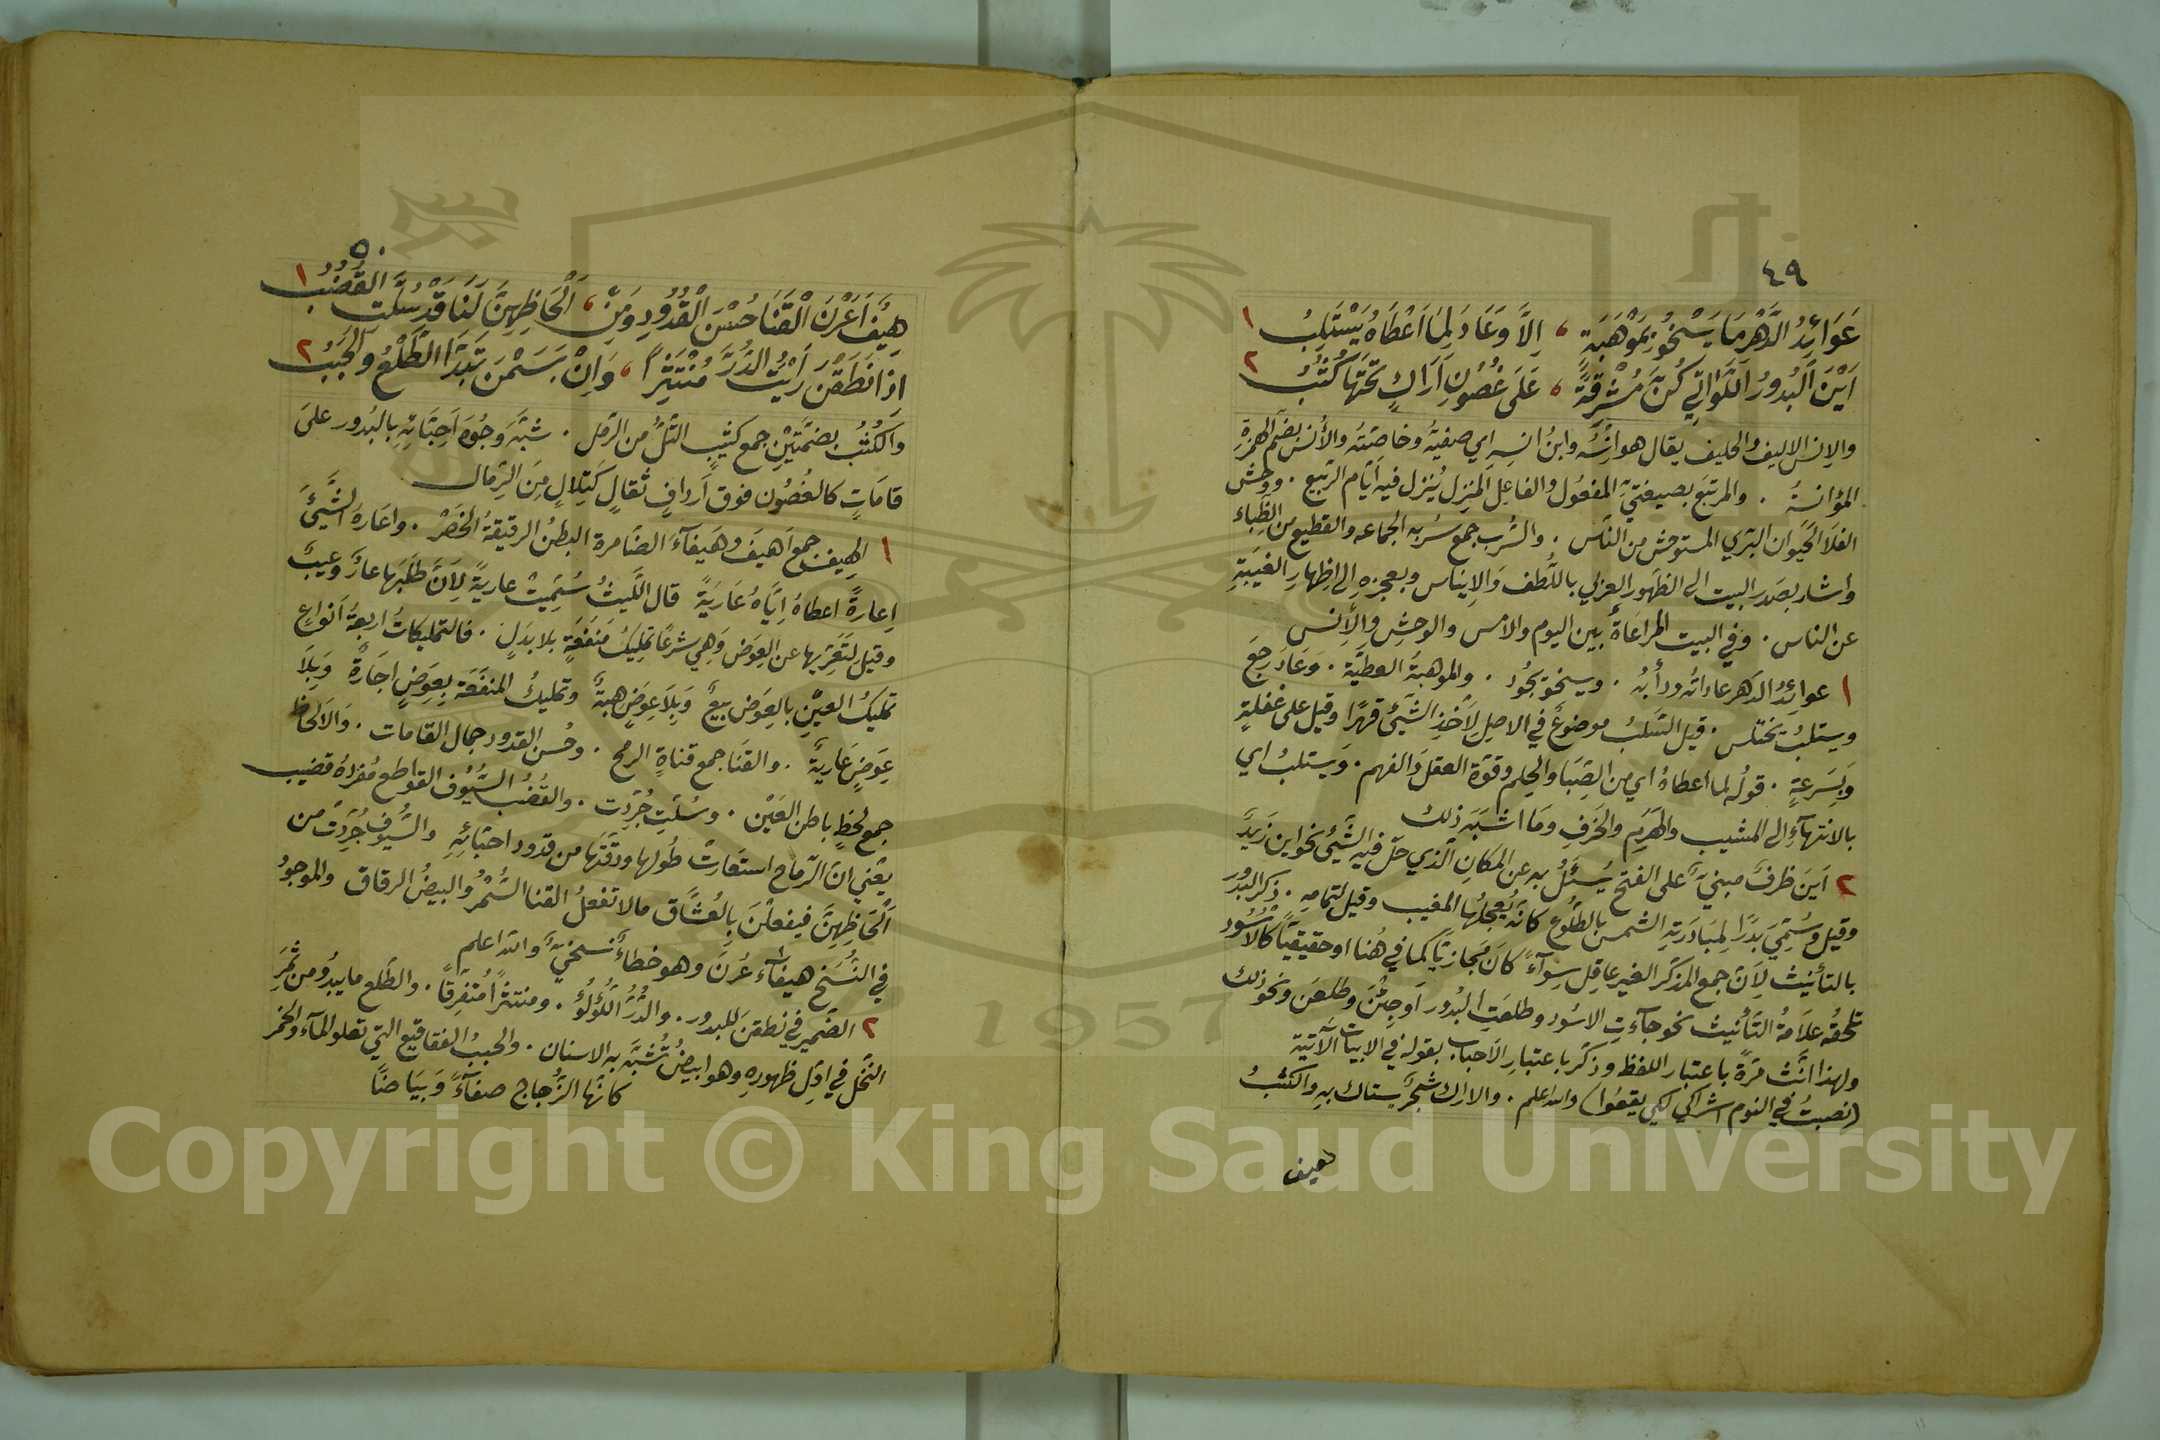 ٤٩
عَوَائِدُ الدَّهْرِ مَا يَسْخُو بِمَوْهَبَةٍ ، اِلَّا وَعَادَ لِمَا اَعْطَاهُ يَسْتَلِبُ ١
اَيْنَ الْبُدُورُ اللَّوَاتِي كُنَّ مُشْرِقَةً ، عَلَى غُصُونِ اَرَاكٍ تَحْتَهَا كُثُبُ ٢
والاِنس الاليف والحليف يقال هو اِنْسُه وابنُ انسِهِ اي صفيّهُ وخاصّتهُ والأُنس بضم الهمزة
المؤانسةُ . والمرتبَع بصيغتيّ المفعول والفاعل المنزل يُنزل فيه ايّام الربيع . ووحش
الفلا الحَيَوان البرّي المستوحش من الناس . والسُرب جمع سُربه الجماعه والقطيع من الظباء
واشار بصدر البيت الى الظهور العزلي باللُّطف وَالاِيناس وبعجزهِ الى اظهارِ الغَيبَةِ
عن الناس . وفي البيت المراعاةُ بين اليوم والامس والوحشِ والاِنس
١ عوائدُ الدهر عاداتُه ودأبُه . ويسخو يجُود . والموهبةُ العطيّة . وَعَادَ رجَع
ويستلبُ يختلس . قيل السَلبُ موضوعٌ في الاصلِ لِأَخذِ الشيئ قهرًا وقيل على غفلةٍ
وَبِسُرعةٍ . قولُه لما اعطاهُ اي من الصِّبا والحِلم وقوّة العقل وَالفهم . وَيستلبُ اي
بالانتهآءِ الى المشيب والهَرَمِ والخَرَفِ وَمَا اشبَه ذلك
٢ اَينَ ظرفٌ مبنيّ على الفتح يُسئَلُ به عن المكان الذي حَلَّ فيه الشيئُ نحو اين زَيدٌ
وقيل وسُمِّيَ بَدرًا لمبَادَرتهِ الشمسَ بالطلوع كانّه يُعجلُها المغيب وقيل لتمامهِ . ذكر البُدُرَ
بالتأنيث لِأنّ جمع المذكّر الغير عاقل سِواءٌ كانَ مَجازيًا كما في هُنا او حقيقيًا كالاُسُود
تلحقُه علامةُ التّأنيث نحو جآءتِ الاسُود وطلعَتِ البُدور اَو جِئنَ وطلعنَ ونحو ذلك
ولهذا انّث مَرّةً باعتبار اللفظ وذكّر باعتبارِ الاَحباب بقوله في الابيات الآتية
(نصبتُ في النوم اشراكي لكي يقعُوا) والله اعلم . والاراك شجرٌ يستاك بهِ والكثُبُ
هيف
٥٠
هِيْفٌ اَعَرْنَ الْقَنَا حُسْنَ الْقُدُودِ وَمِنْ ، اَلْحَاظِهِنَّ لَنَا قَدْ سُلَّتِ القُضُبُ ١
اِذَا نَطَقْنَ رَاَيْتَ الدُّرَّ مُنْتَثِرًا ، وَاِنْ بَسَمْنَ تَبَدَّا الطَّلْعُ وَالْحَبَبُ ٢
والكُثُبُ بضمّتيْنِ جمع كثيبِ التلُّ من الرمَل . شبّه وجُوهَ اَحِبّائِهِ بالبُدور علىَ
قامَاتٍ كالغصُون فوق اَردافٍ ثقالٍ كَتِلالٍ مِنَ الرِمال
١ الهِيف جمع اَهيَف وهَيفآء الضَامرة البطنُ الرقيقةُ الخَصْر . واعَارهُ الشَّيئَ
اِعارةً اعطاهُ اِيّاهُ عَاريَةً قال اللَّيثُ سُمّيتْ عاريَةً لِاَنَّ طَلَبَها عارٌ وعيبٌ
وقيل لتَعرِّيها عن العِوَض وَهِيَ شرعًا تمليكُ منفَعَةٍ بلا بدَلٍ . فالتمليكاتُ اربعةُ اَنواعٍ
تمليكُ العَيْنِ بالعِوَض بيعٌ وَبِلَا عِوَضٍ هبَةٌ وتمليكُ المنفَعَة بِعِوَضٍ اِجَارةٌ وَبِلَا
عِوَضٍ عَاريَةٌ . والقنَا جمع قناةٍ الرمح . وحُسن القدود جمال القامات . وَالاَلحاظ
جمع لحظٍ باطن العَيْن . وسُلّتِ جُرِّدت . والقُضُبُ السُّيُوف القواطع مُفردُهُ قضِيب
يعْنِي انّ الرّماح استعَارتْ طُولَها ودِقّتَها من قدود احبّائهِ والسُّيوف جُرِّدتْ من
اَلْحَاظِهِنَّ فيفعلنَ بِالعُشّاق ما لا تفعلُ القنا السُّمْرُ والبيضُ الرقاق والموجودُ
في النُّسَخ هيفآء عُرنَ وهو خطاءٌ نسخيٌّ والله اعلم
٢ الضمير في نطقنَ للبدور . والدُّرُّ اللُؤلُؤ . ومنتثرًا مُتَفرقًا . والطَلع ما يبدُو من ثمَرِ
النَّخل في اوّل ظهورهِ وهو ابيضُ تُشَبَّه به الاسنان . والحببُ الفقاقيع التي تعلو المآء والخمر
كانّها الزُّجاج صفآءً وَبيَاضًا
Copyright © King Saud University
1957